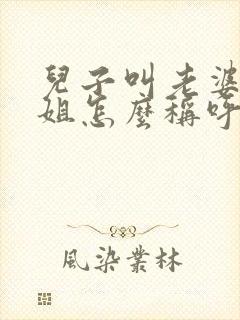 兒子叫老婆
姐怎麼稱呼
風染叢林